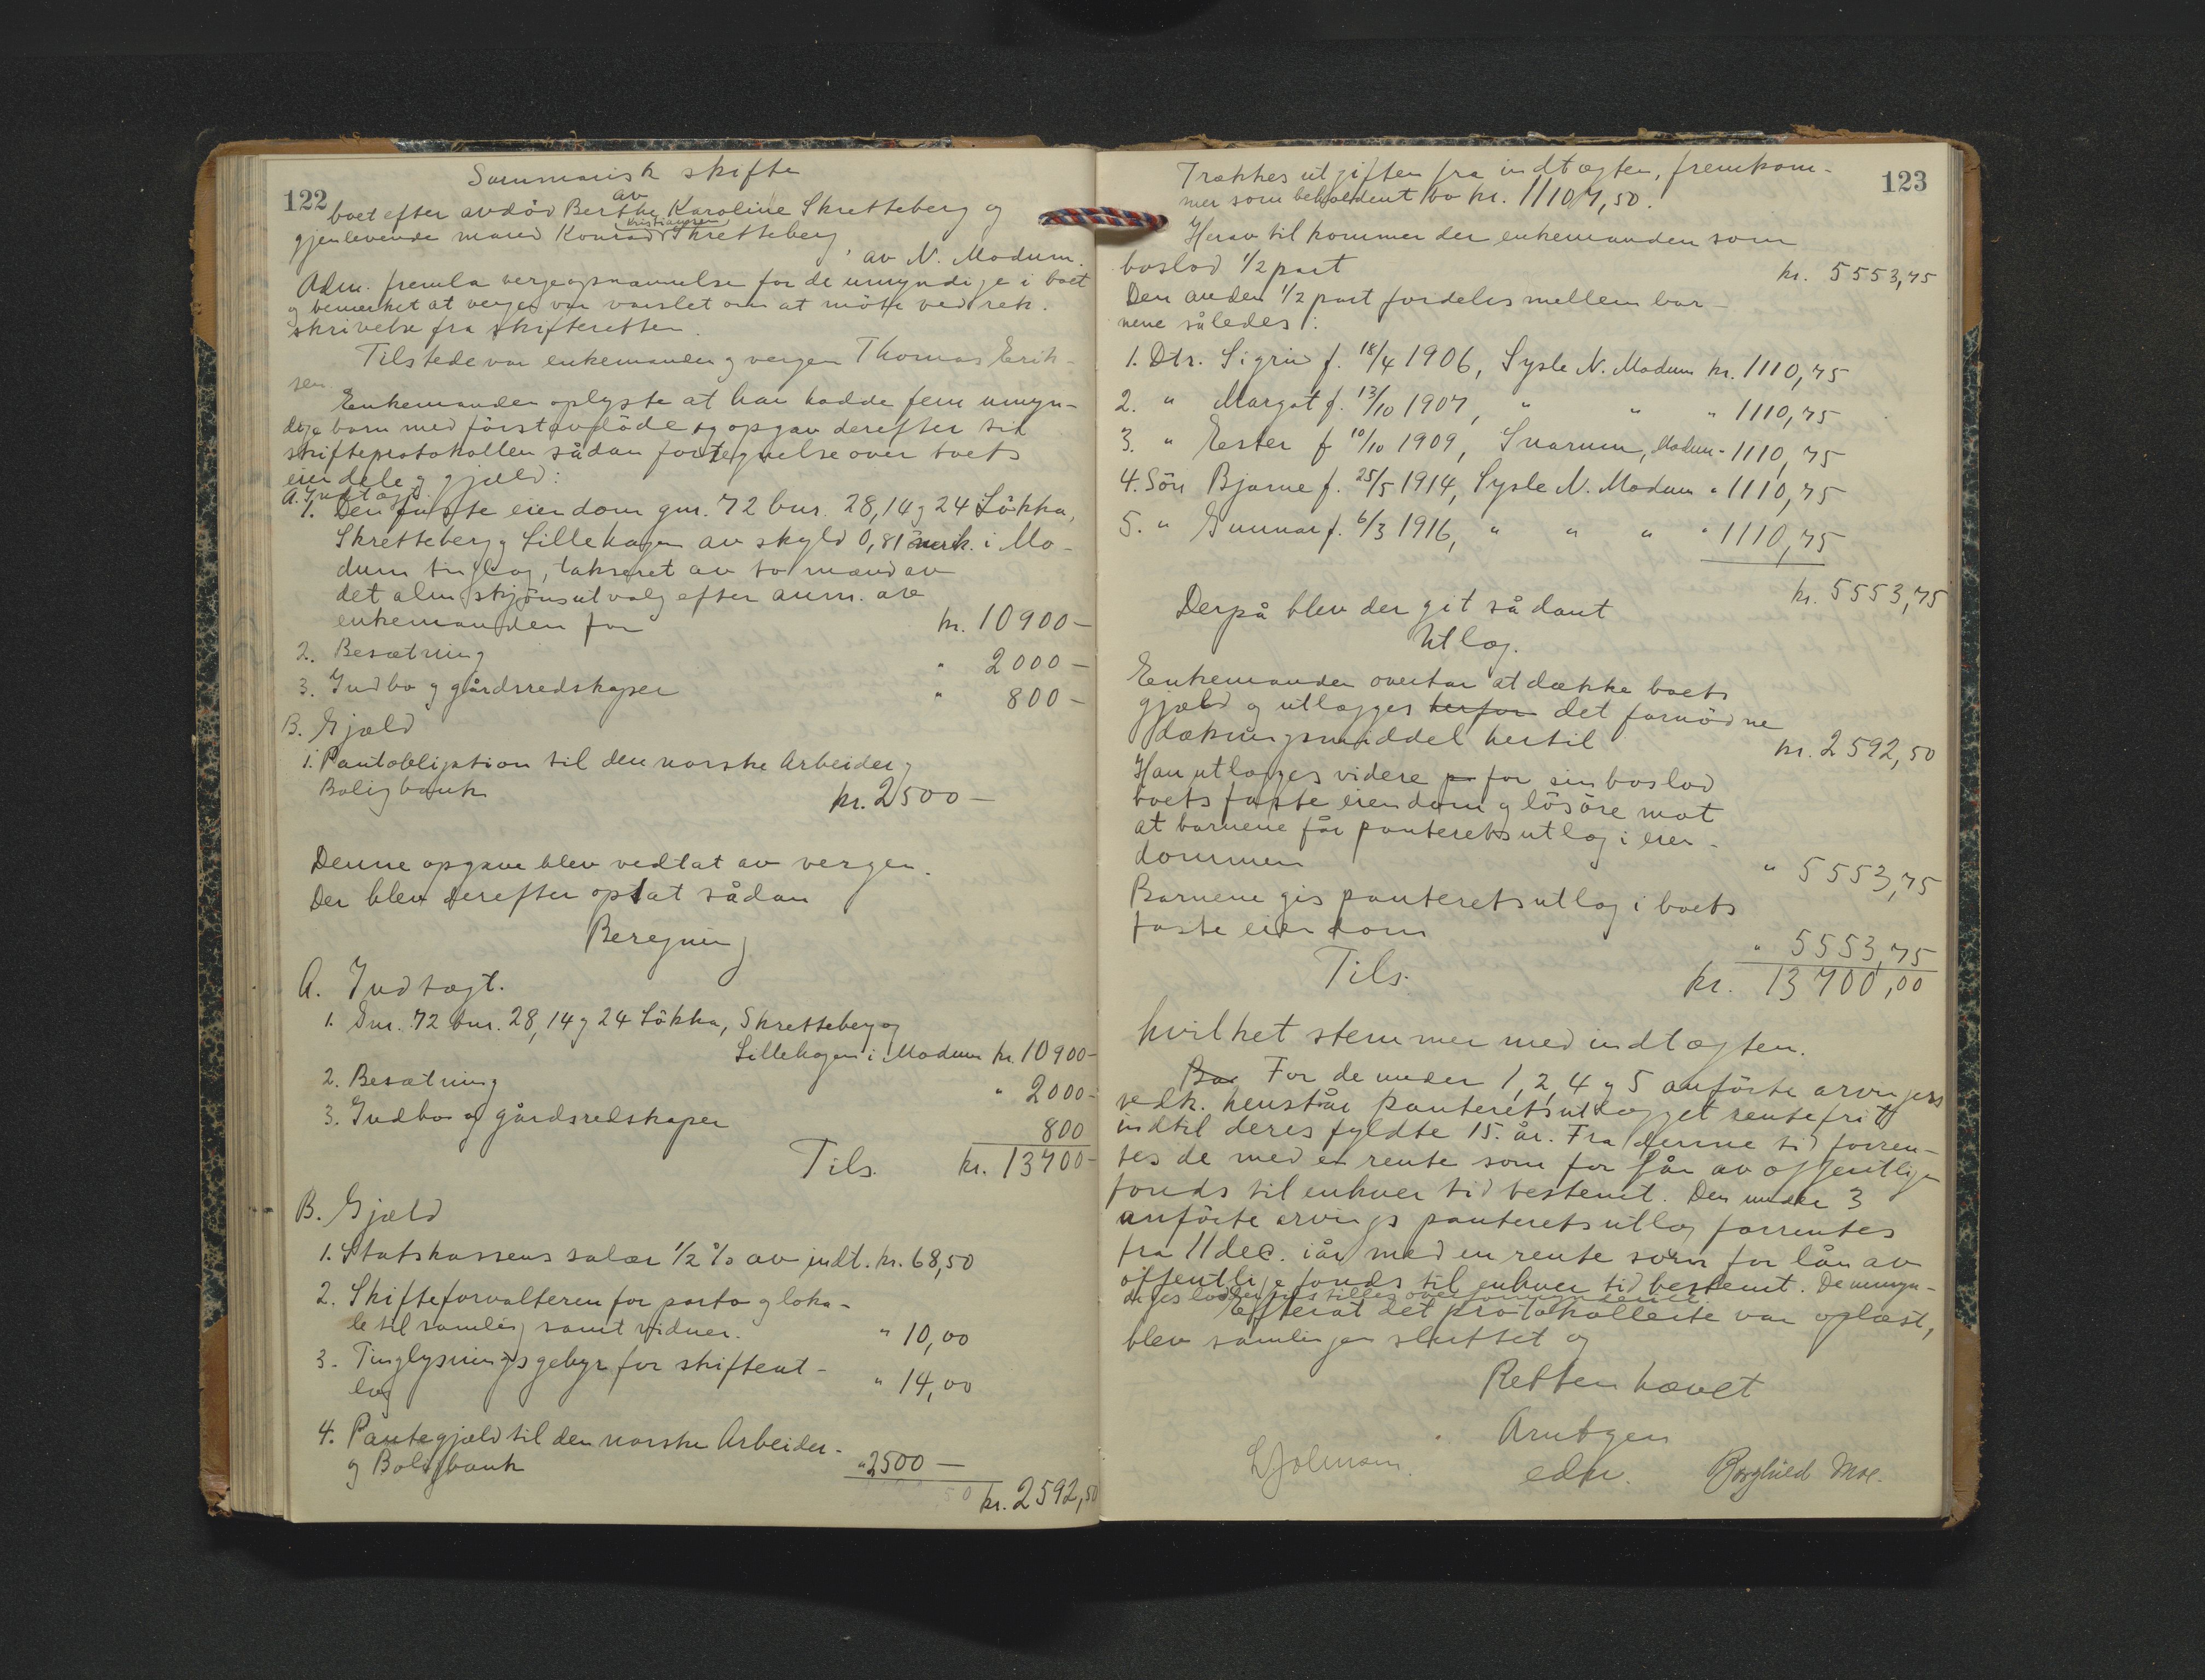 122
Summarisk skifte
av
boet efter avdöd Berthe Karoline Skretteberg og
Kristiansen
gjenlevende mand Konrad Skretteberg
av N. Modum.
Adm. fremla vergeopnævnelse for de umyndige i boet
og bemerket at vergen var varslet om at möte ved rek.
skrivelse fra skifteretten.
Tilstede var enkemanden og vergen Thomas Erik-
sen.
Enkemanden oplyste at han hadde fem umyn-
dige barn med förstavdöde og opgav derefter til
skifteprotokollen sådan fortegnelse over boets
eiendele og gjæld:
A. Indtægt.
1. Den faste eiendom gnr. 72 bnr. 28, 14 og 24 Lökka,
Skretteberg og Lillehagen av skyld 0,81 mark i Mo-
dum tinglag, takseret av to mænd av
det alm. skjönsutvalg efter anm. av
enkemanden for kr. 10900-
2. Besætning " 2000-
3. Indbo og gårdsredskaper " 800-
B. Gjæld
1. Pantobligation til den norske Arbeider og
Boligbank kr. 2500-
Denne opgave blev vedtat av vergen.
Der blev derefter optat sådan
Beregning
A. Indtægt.
1. Gnr. 72 bnr. 28, 14 og 24 Lökka, Skretteberg og
Lillehagen i Modum kr. 10900-
2. Besætning " 2000-
3. Indbo og gårdsredskaper 800
Tils. kr. 13700-
B. Gjæld
1. Statskassens salær 1/2 % av indt. kr. 68,50
2. Skifteforvalteren for porto og loka-
le til samling samt vidner. " 10,00
3. Tinglysningsgebyr for skifteut-
læg " 14,00
4. Pantegjæld til den norske Arbeider-
og Boligbank " 2500-
kr. 2592,50
123
Trækkes utgiften fra indtægten, fremkom-
mer som beholdent bo kr. 11107,50.
Herav tilkommer der enkemanden som
boslod 1/2 part kr. 5553,75
Den anden 1/2 part fordeles mellem bar-
nene således:
1. Dtr. Sigrid f. 18/4 1906, Sysle N. Modum kr. 1110,75
2. " Margot f. 13/10 1907, " " " 1110,75
3. " Ester f 10/10 1909, Snarum, Modum " 1110,75
4. Sön Bjarne f. 25/5 1914, Sysle N. Modum " 1110,75
5. " Gunnar f. 6/3 1916, " " " " 1110,75
kr. 5553,75
Derpå blev der git sådant
Utlæg.
Enkemanden overtar at dække boets
gjæld og utlægges herfor det fornödne
dækningsmiddel hertil kr. 2592,50
Han utlægges videre p for sin boslod
boets faste eiendom og lösöre mot
at barnene får panteretsutlæg i eien-
dommen " 5553,75
Barnene gis panteretsutlæg i boets
faste eiendom " 5553,75
Tils. kr. 13700,00
hvilket stemmer med indtægten.
Ba For de under 1, 2, 4 og 5 anförte arvingers
vedk. henstår panteretsutlægget rentefrit
indtil deres fyldte 15. år. Fra denne tid forren-
tes de med en rente som for lån av offentlige
fonds til enhver tid bestemt. Den under 3
anförte arvings panteretsutlæg forrentes
fra 11 dec. iår med en rente som for lån av
offentlige fonds til enhver tid bestemt. De umyn-
diges lodder stilles under overformynderiet.
Efterat det protokollerte var oplæst,
blev samlingen sluttet og
Retten hævet
Arntzen
edm.
Borghild Moe.